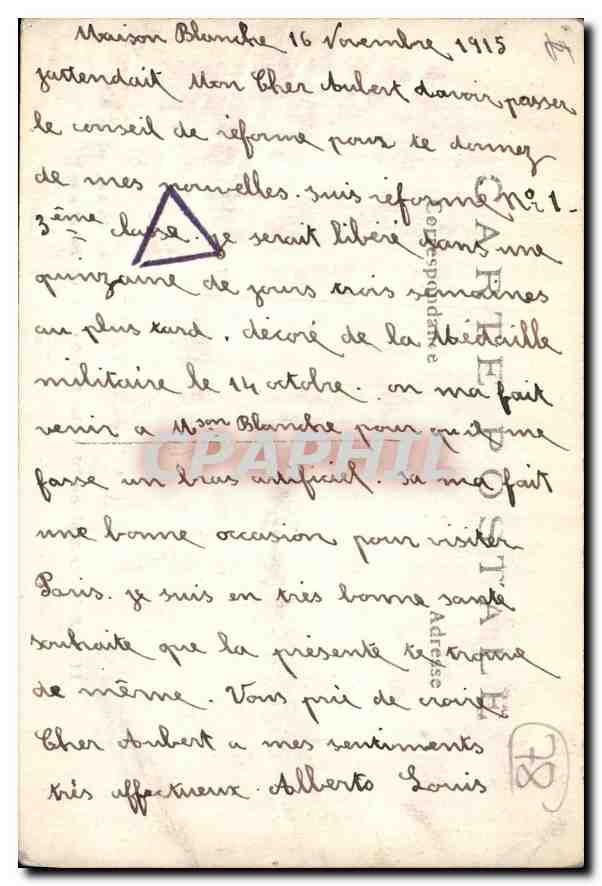 Maison Blanche 16 Novembre 1915
jattendait Mon Cher Aubert davoir passer
le conseil de réforme pour te donnez
de mes nouvelles. suis réformé No 1 -
3ème classe. je serait libéré dans une
quinzaine de jours trois semaines
au plus tard. décoré de la Médaille
militaire le 14 octobre. on ma fait
venir a Mson Blanche pour qu'il me
fasse un bras artificiel. sa ma fait
une bonne occasion pour visiter
Paris. je suis en très bonne sante
souhaite que la présente te trouve
de même. Vous prie de croire
Cher Aubert a mes sentiments
très affectueux. Alberto Louis
CARTE POSTALE
Correspondance
Adresse
CPAPHIL
78